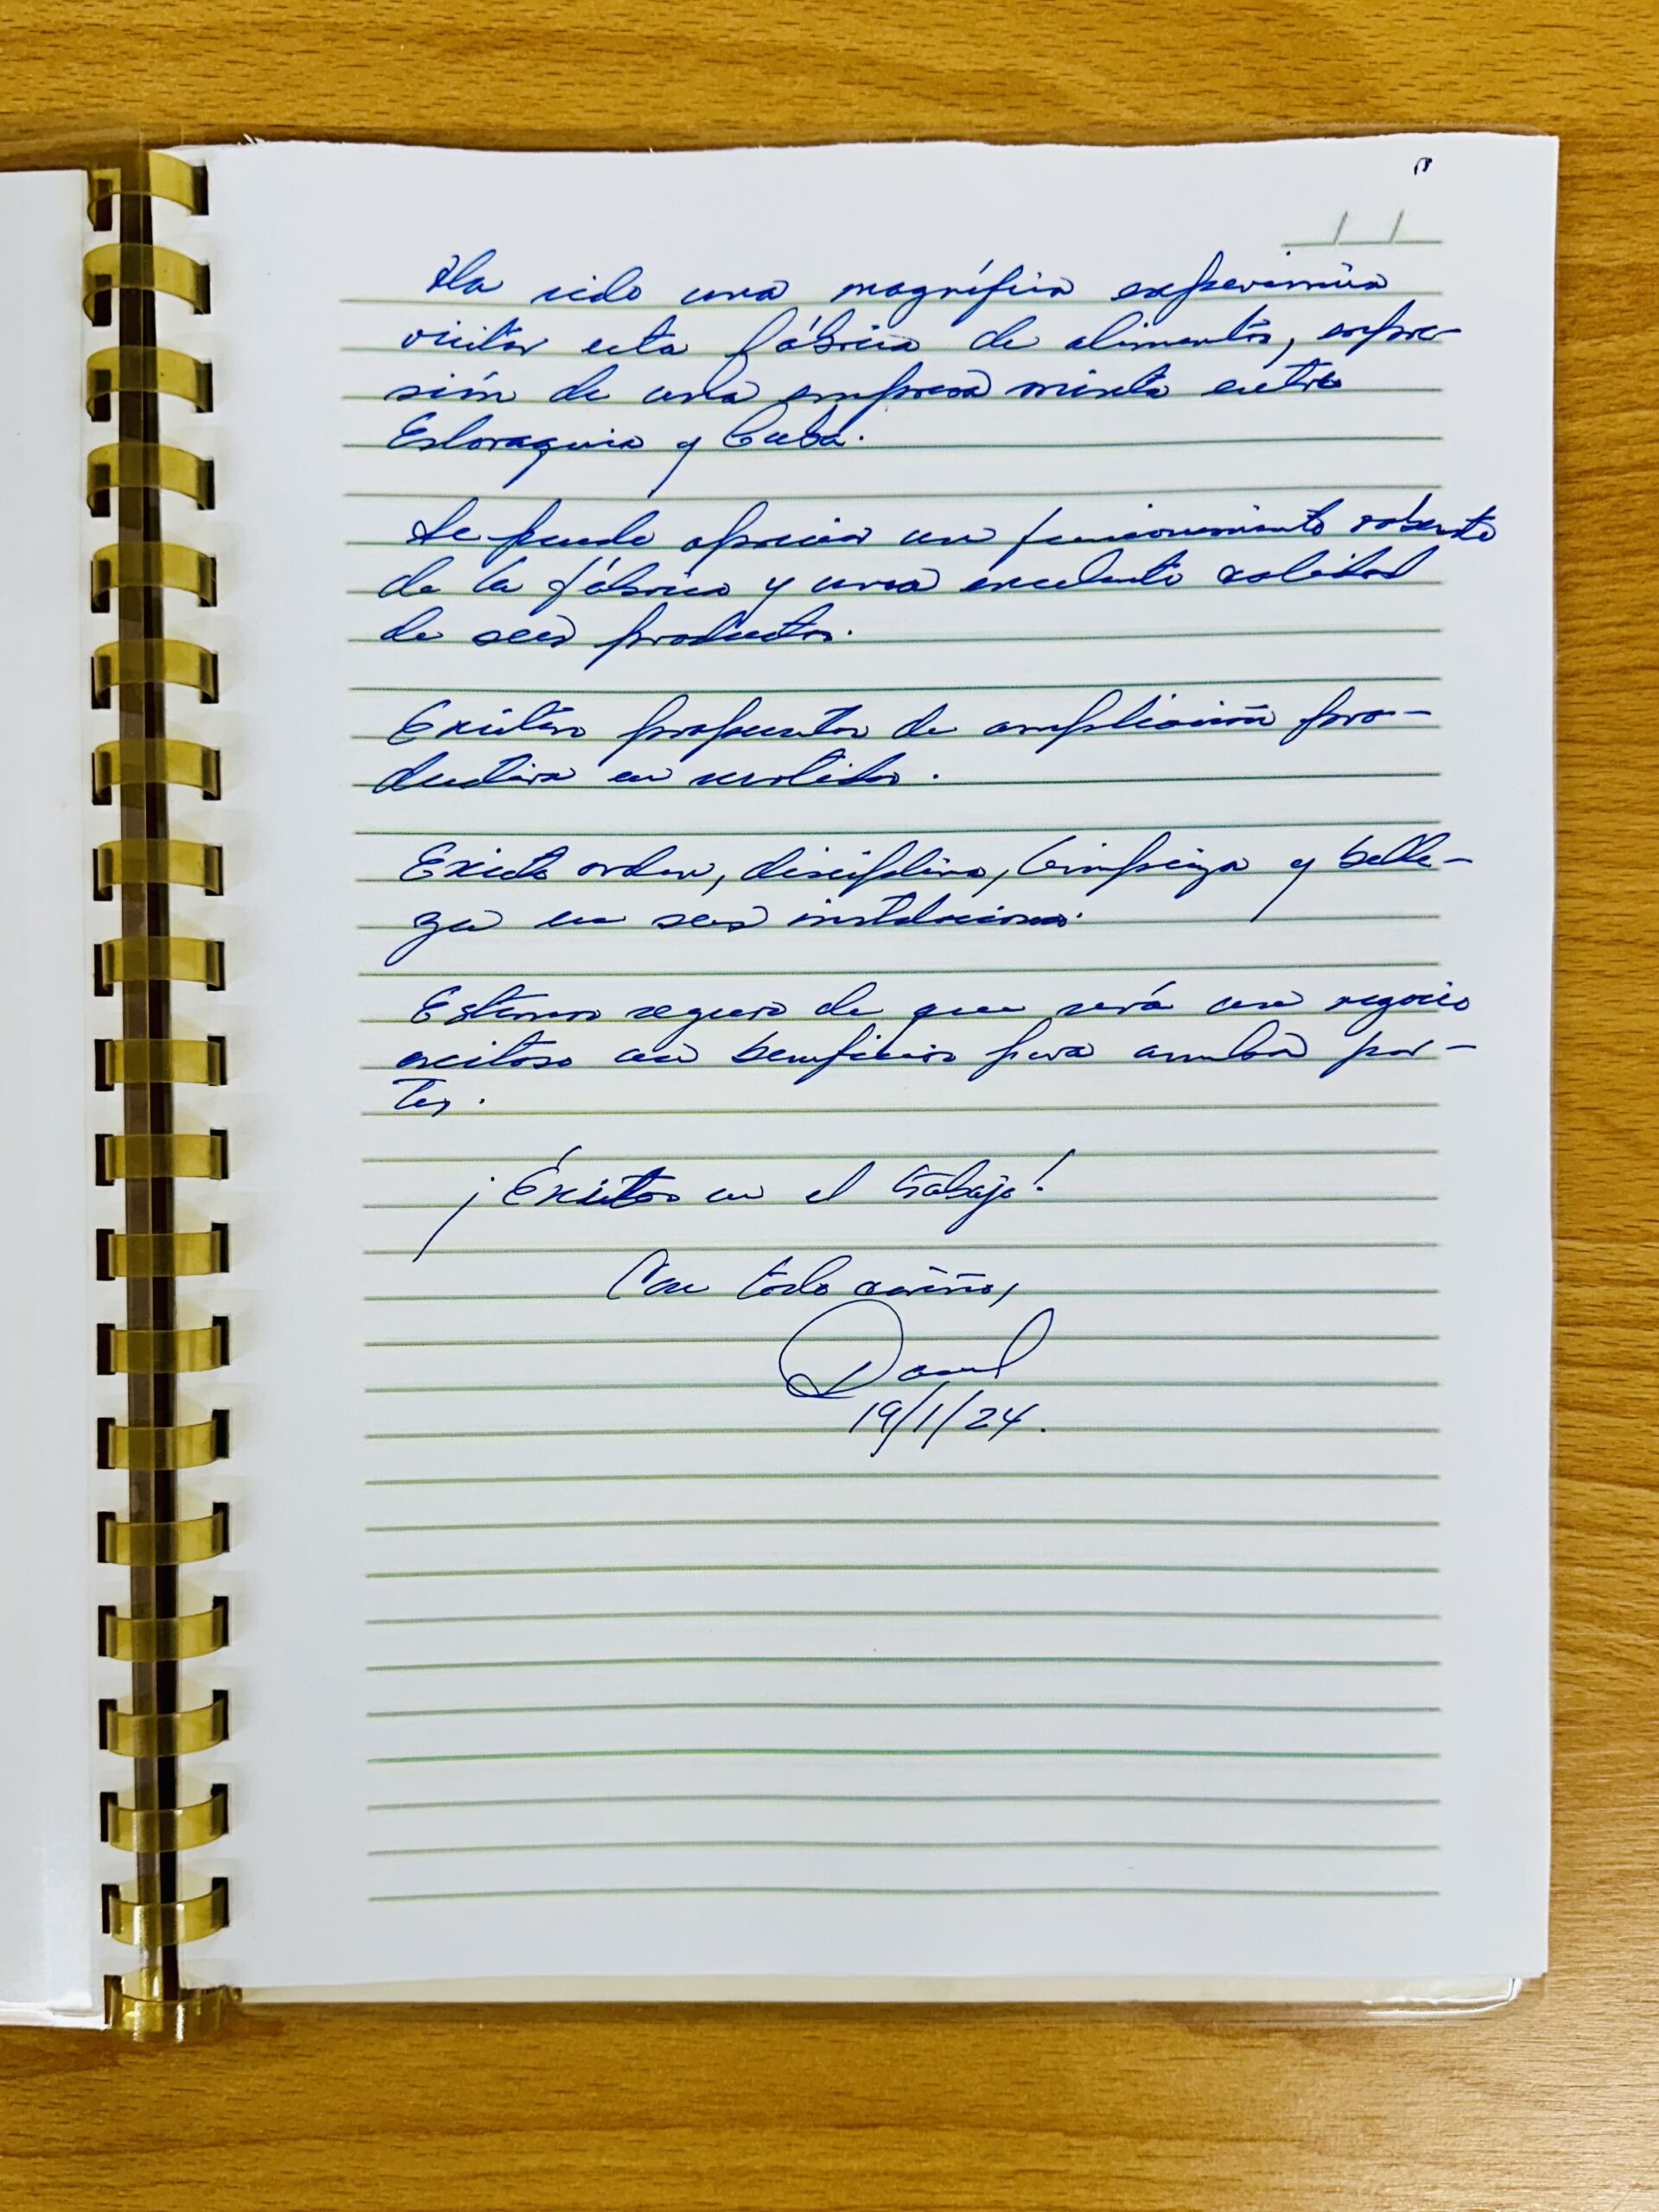 Ha sido una magnífica experiencia
visitar esta fábrica de alimentos, expre-
sión de una empresa mixta entre
Eslovaquia y Cuba.
Se puede apreciar un funcionamiento robusto
de la fábrica y una excelente calidad
de sus productos.
Existen propuestas de ampliación pro-
ductiva en surtidos.
Existe orden, disciplina, limpieza y belle-
za en sus instalaciones.
Estamos seguros de que será un negocio
exitoso con beneficios para ambas par-
tes.
¡Éxitos en el trabajo!
Con todo cariño,
19/1/24.